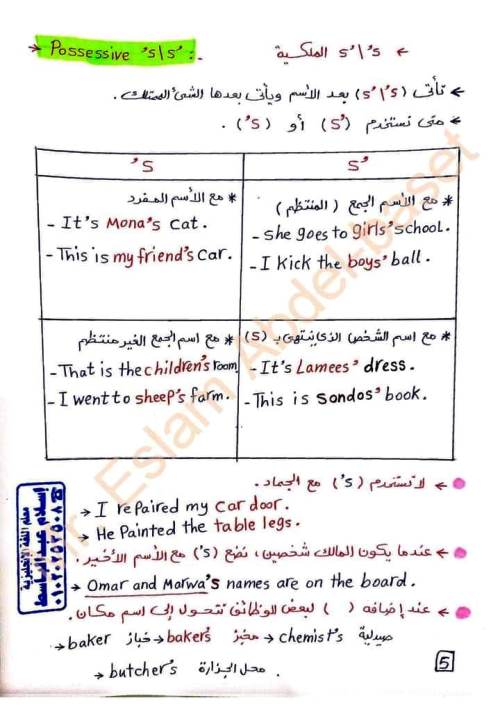 → Possessive 's\s' :-
← s'\'s الملكية
← تأتى (s'\'s) بعد الأسم ويأتى بعدها الشئ الممتلك.
← متى نستخدم (s') أو ('s) .
's
s'
* مع الأسم المفرد
- It's Mona's cat.
- This is my friend's car.
* مع الأسم الجمع (المنتظم)
- She goes to girls' school.
- I kick the boys' ball.
* مع اسم الجمع الغير منتظم
- That is the children's room
- I went to sheep's farm.
* مع اسم الشخص الذى ينتهى بـ (s)
- It's Lamees' dress.
- This is Sondos' book.
← لا تستخدم ('s) مع الجماد.
→ I repaired my car door.
→ He Painted the table legs.
← عندما يكون المالك شخصين، نضع ('s) مع الأسم الأخير.
→ Omar and Marwa's names are on the board.
← عند إضافه ( ) لبعض الوظائف تتحول إلى اسم مكان.
→ baker خباز → baker's مخبز → chemist's صيدلية
→ butcher's محل الجزارة .
5
Mr. Eslam Abdel-baset
معلم اللغة الإنجليزية
إسلام عبدالباسط